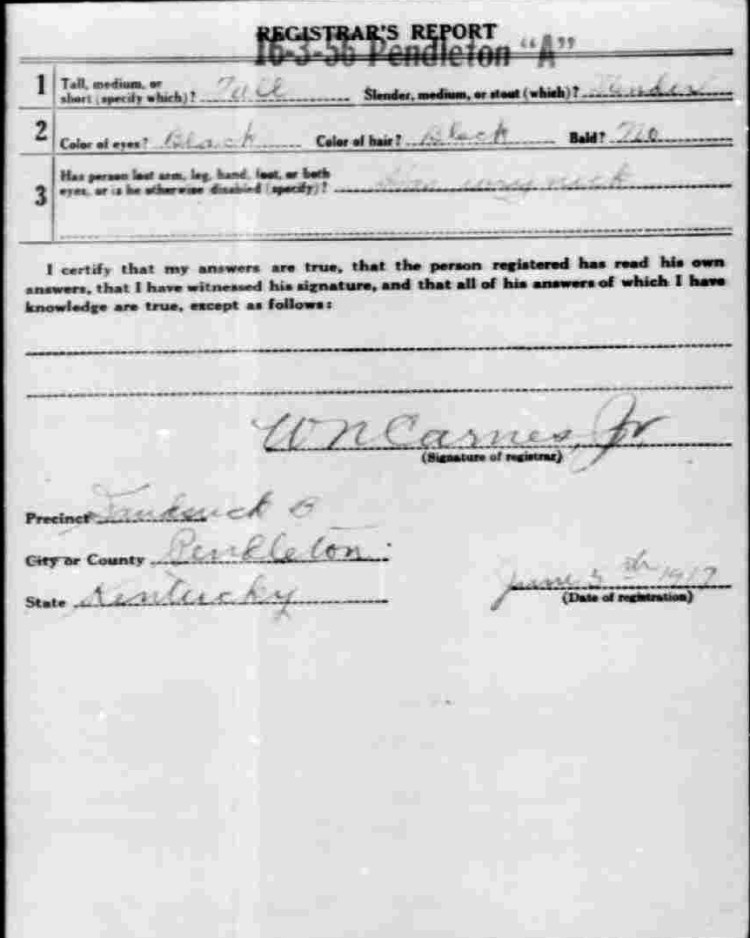 REGISTRAR'S REPORT
16-3-56 Pendleton "A"
1 Tall, medium, or short (specify which)? Tall Slender, medium, or stout (which)? Slender
2 Color of eyes? Black Color of hair? Black Bald? No
3 Has person lost arm, leg, hand, foot, or both
eyes, or is he otherwise disabled (specify)? Has wry neck
I certify that my answers are true, that the person registered has read his own
answers, that I have witnessed his signature, and that all of his answers of which I have
knowledge are true, except as follows:
W N Carnes, Jr
(Signature of registrar)
Precinct B
City or County Pendleton
State Kentucky
June 5th 1917
(Date of registration)